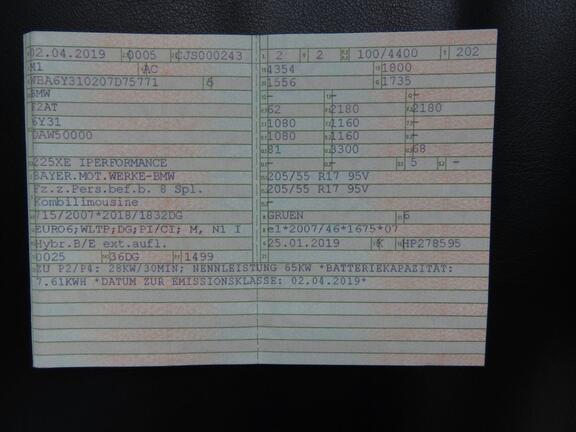 02.04.2019 0005 CJS000243
M1 AC
WBA6Y310207D75771 6
BMW
F2AT
6Y31
DAW50000
225XE IPERFORMANCE
BAYER.MOT.WERKE-BMW
Fz.z.Pers.bef.b. 8 Spl.
Kombilimousine
715/2007*2018/1832DG
EURO6;WLTP;DG;PI/CI; M, N1 I
Hybr.B/E ext.aufl.
0025 36DG 1499
2 2 100/4400 202
4354 1800
1556 1735
- - -
62 2180 2180
1080 1160 -
1080 1160 -
81 3300 68
- - 5 -
205/55 R17 95V
205/55 R17 95V
GRUEN 6
e1*2007/46*1675*07
25.01.2019 K HP278595
ZU P2/P4: 28KW/30MIN; NENNLEISTUNG 65KW *BATTERIEKAPAZITÄT:
7.61KWH *DATUM ZUR EMISSIONSKLASSE: 02.04.2019*